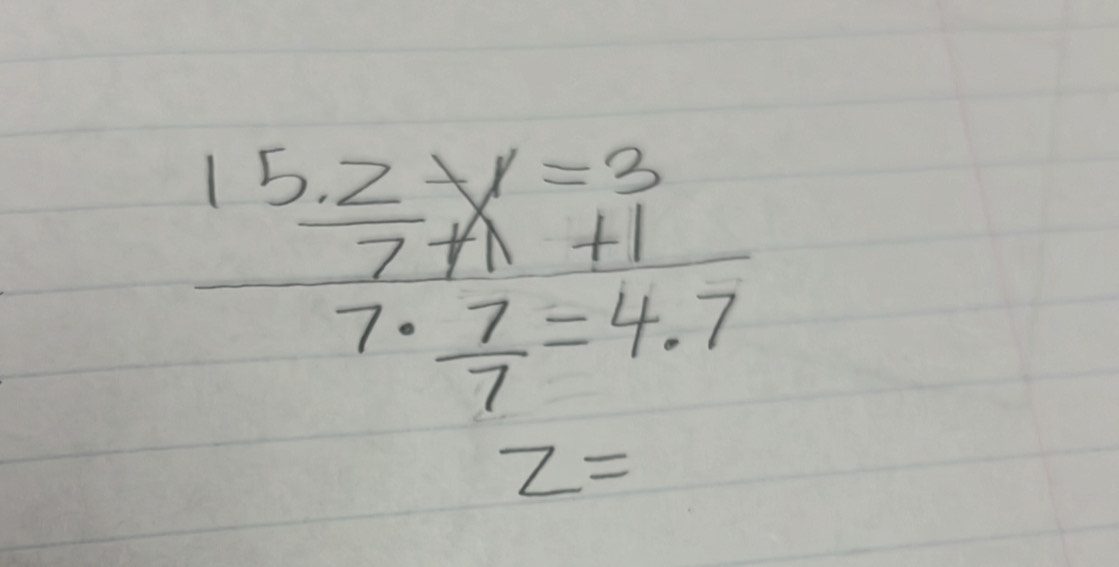 15. z/7 - 1 = 3
+1 +1
7 · 7/7 = 4.7
z =